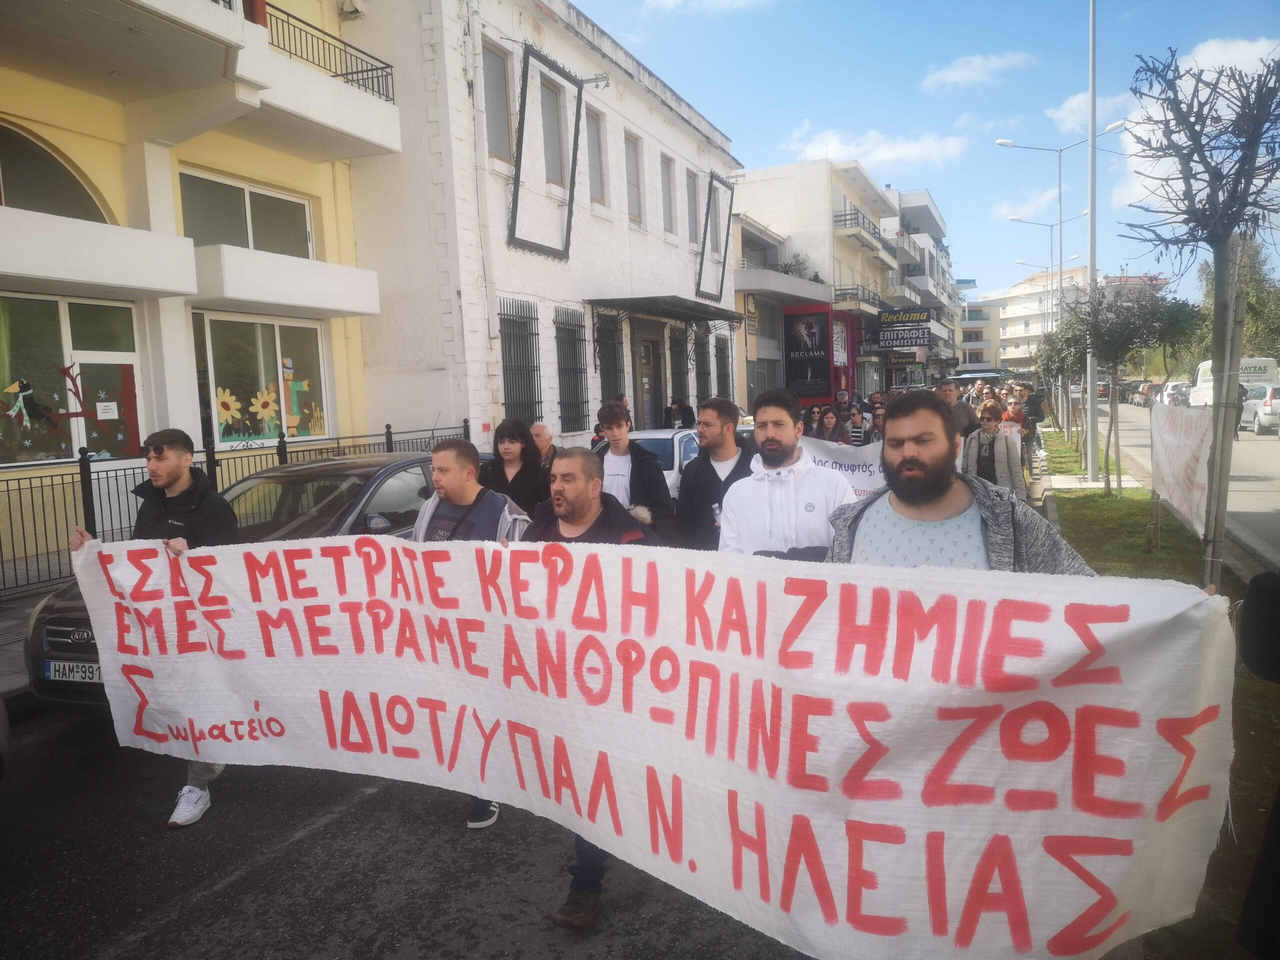 ΕΣΕΙΣ ΜΕΤΡΑΤΕ ΚΕΡΔΗ ΚΑΙ ΖΗΜΙΕΣ
ΕΜΕΙΣ ΜΕΤΡΑΜΕ ΑΝΘΡΩΠΙΝΕΣ ΖΩΕΣ
Σωματείο ΙΔΙΩΤ/ΥΠΑΛ Ν. ΗΛΕΙΑΣ
Reclama
ΕΠΙΓΡΑΦΕΣ
ΚΟΜΙΩΤΗΣ
RECLAMA
σκυφτός,
KIA